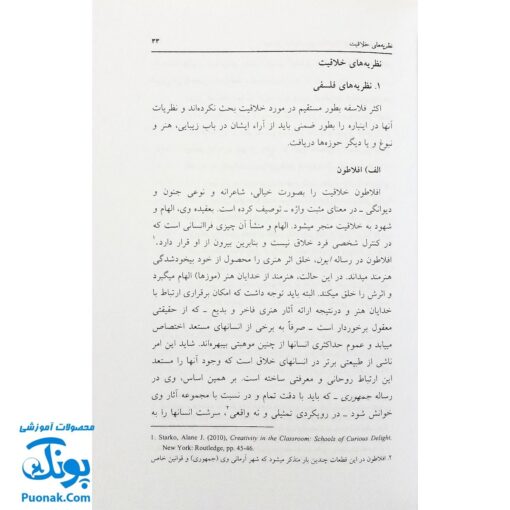 نظریه‌های خلاقیت ۳۳
نظریه‌های خلاقیت
۱. نظریه‌های فلسفی
اکثر فلاسفه بطور مستقیم در مورد خلاقیت بحث نکرده‌اند و نظریات
آنها در اینباره را بطور ضمنی باید از آراء ایشان در باب زیبایی، هنر و
نبوغ و یا دیگر حوزه‌ها دریافت.
الف) افلاطون
افلاطون خلاقیت را بصورت خیالی، شاعرانه و نوعی جنون و
دیوانگی ـ در معنای مثبت واژه ـ توصیف کرده است. بعقیده وی، الهام و
شهود به خلاقیت منجر میشود. الهام و منشأ آن چیزی فراانسانی است که
در کنترل شخصی فرد خلاق نیست و بنابرین بیرون از او قرار دارد.۱
افلاطون در رساله ایون، خلق اثر هنری را محصول از خود بیخودشدگی
هنرمند میداند. در این حالت، هنرمند از خدایان هنر (موزها) الهام میگیرد
و اثرش را خلق میکند. البته باید توجه داشت که امکان برقراری ارتباط با
خدایان هنر و درنتیجه ارائه آثار هنری فاخر و بدیع ـ که از حقیقتی
معقول برخوردار است ـ صرفاً به برخی از انسانهای مستعد اختصاص
مییابد و عموم حداکثری انسانها از چنین موهبتی بیبهره‌اند. شاید این امر
ناشی از طبیعتی برتر در انسانهای خلاق است که وجود آنها را مستعد
این ارتباط روحانی و معرفتی ساخته است. بر همین اساس، وی در
رساله جمهوری ـ که باید با دقت تمام و در نسبت با مجموعه آثار وی
خوانش شود ـ در رویکردی تمثیلی و نه واقعی۲، سرشت انسانها را به
1. Starko, Alane J. (2010), Creativity in the Classroom: Schools of Curious Delight.
New York: Routledge, pp. 45-46.
۲. افلاطون در این قطعات چندین بار متذکر میشود که شهر آرمانی وی (جمهوری) و قوانین خاص
محصولات آموزشی
پونک
Puonak.Com